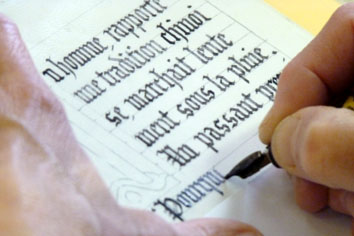 n homme rapporte
me tradition chinoi
se, marchait lente
ment sous la pluie.
Un passant
Pourqu